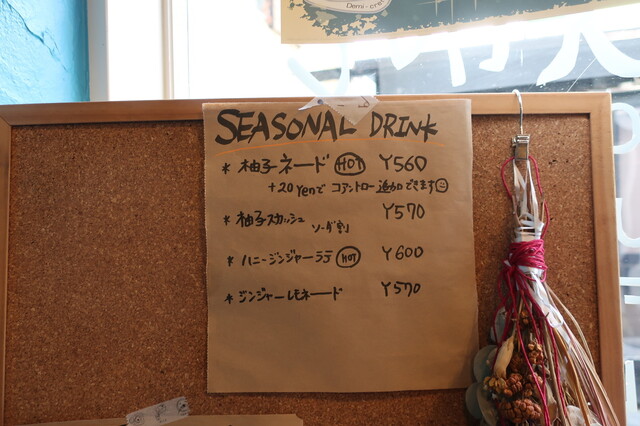 Demi-cre
SEASONAL DRINK
* 柚子ネード HOT ¥560
+20yenで コアントロー 追加できます
* 柚子スカッシュ ソーダ割 ¥570
* ハニージンジャーラテ HOT ¥600
* ジンジャーレモネード ¥570